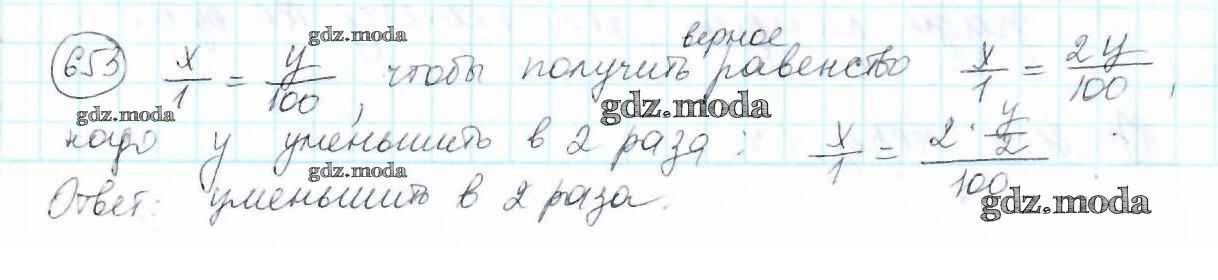 653 x/1 = y/100, чтобы получить верное равенство x/1 = 2y/100,
надо у уменьшить в 2 раза: x/1 = (2 · y/2)/100
Ответ: уменьшить в 2 раза.
gdz.moda
gdz.moda
gdz.moda
gdz.moda
gdz.moda